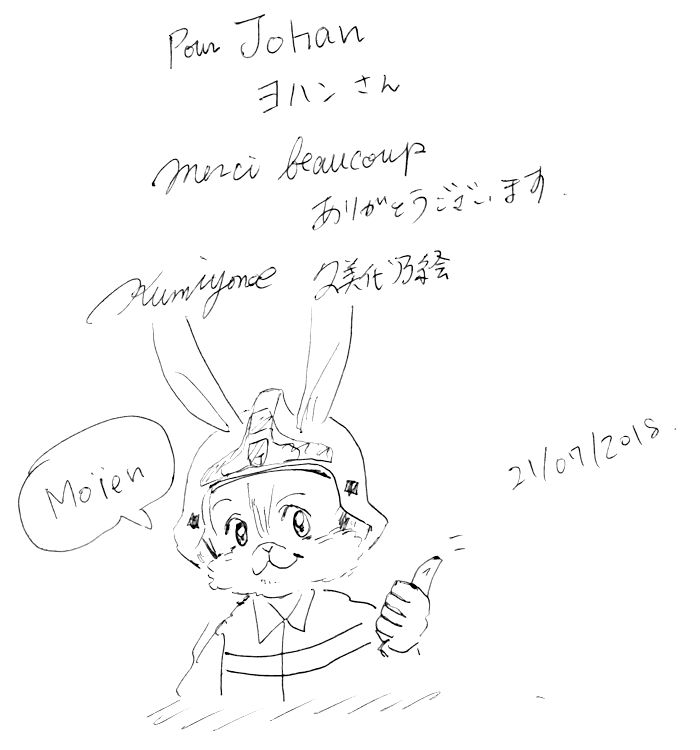 Pour Johan
ヨハンさん
Merci beaucoup
ありがとうございます.
Kumiyonoe 久美代乃絵
Moïen
21/07/2018.